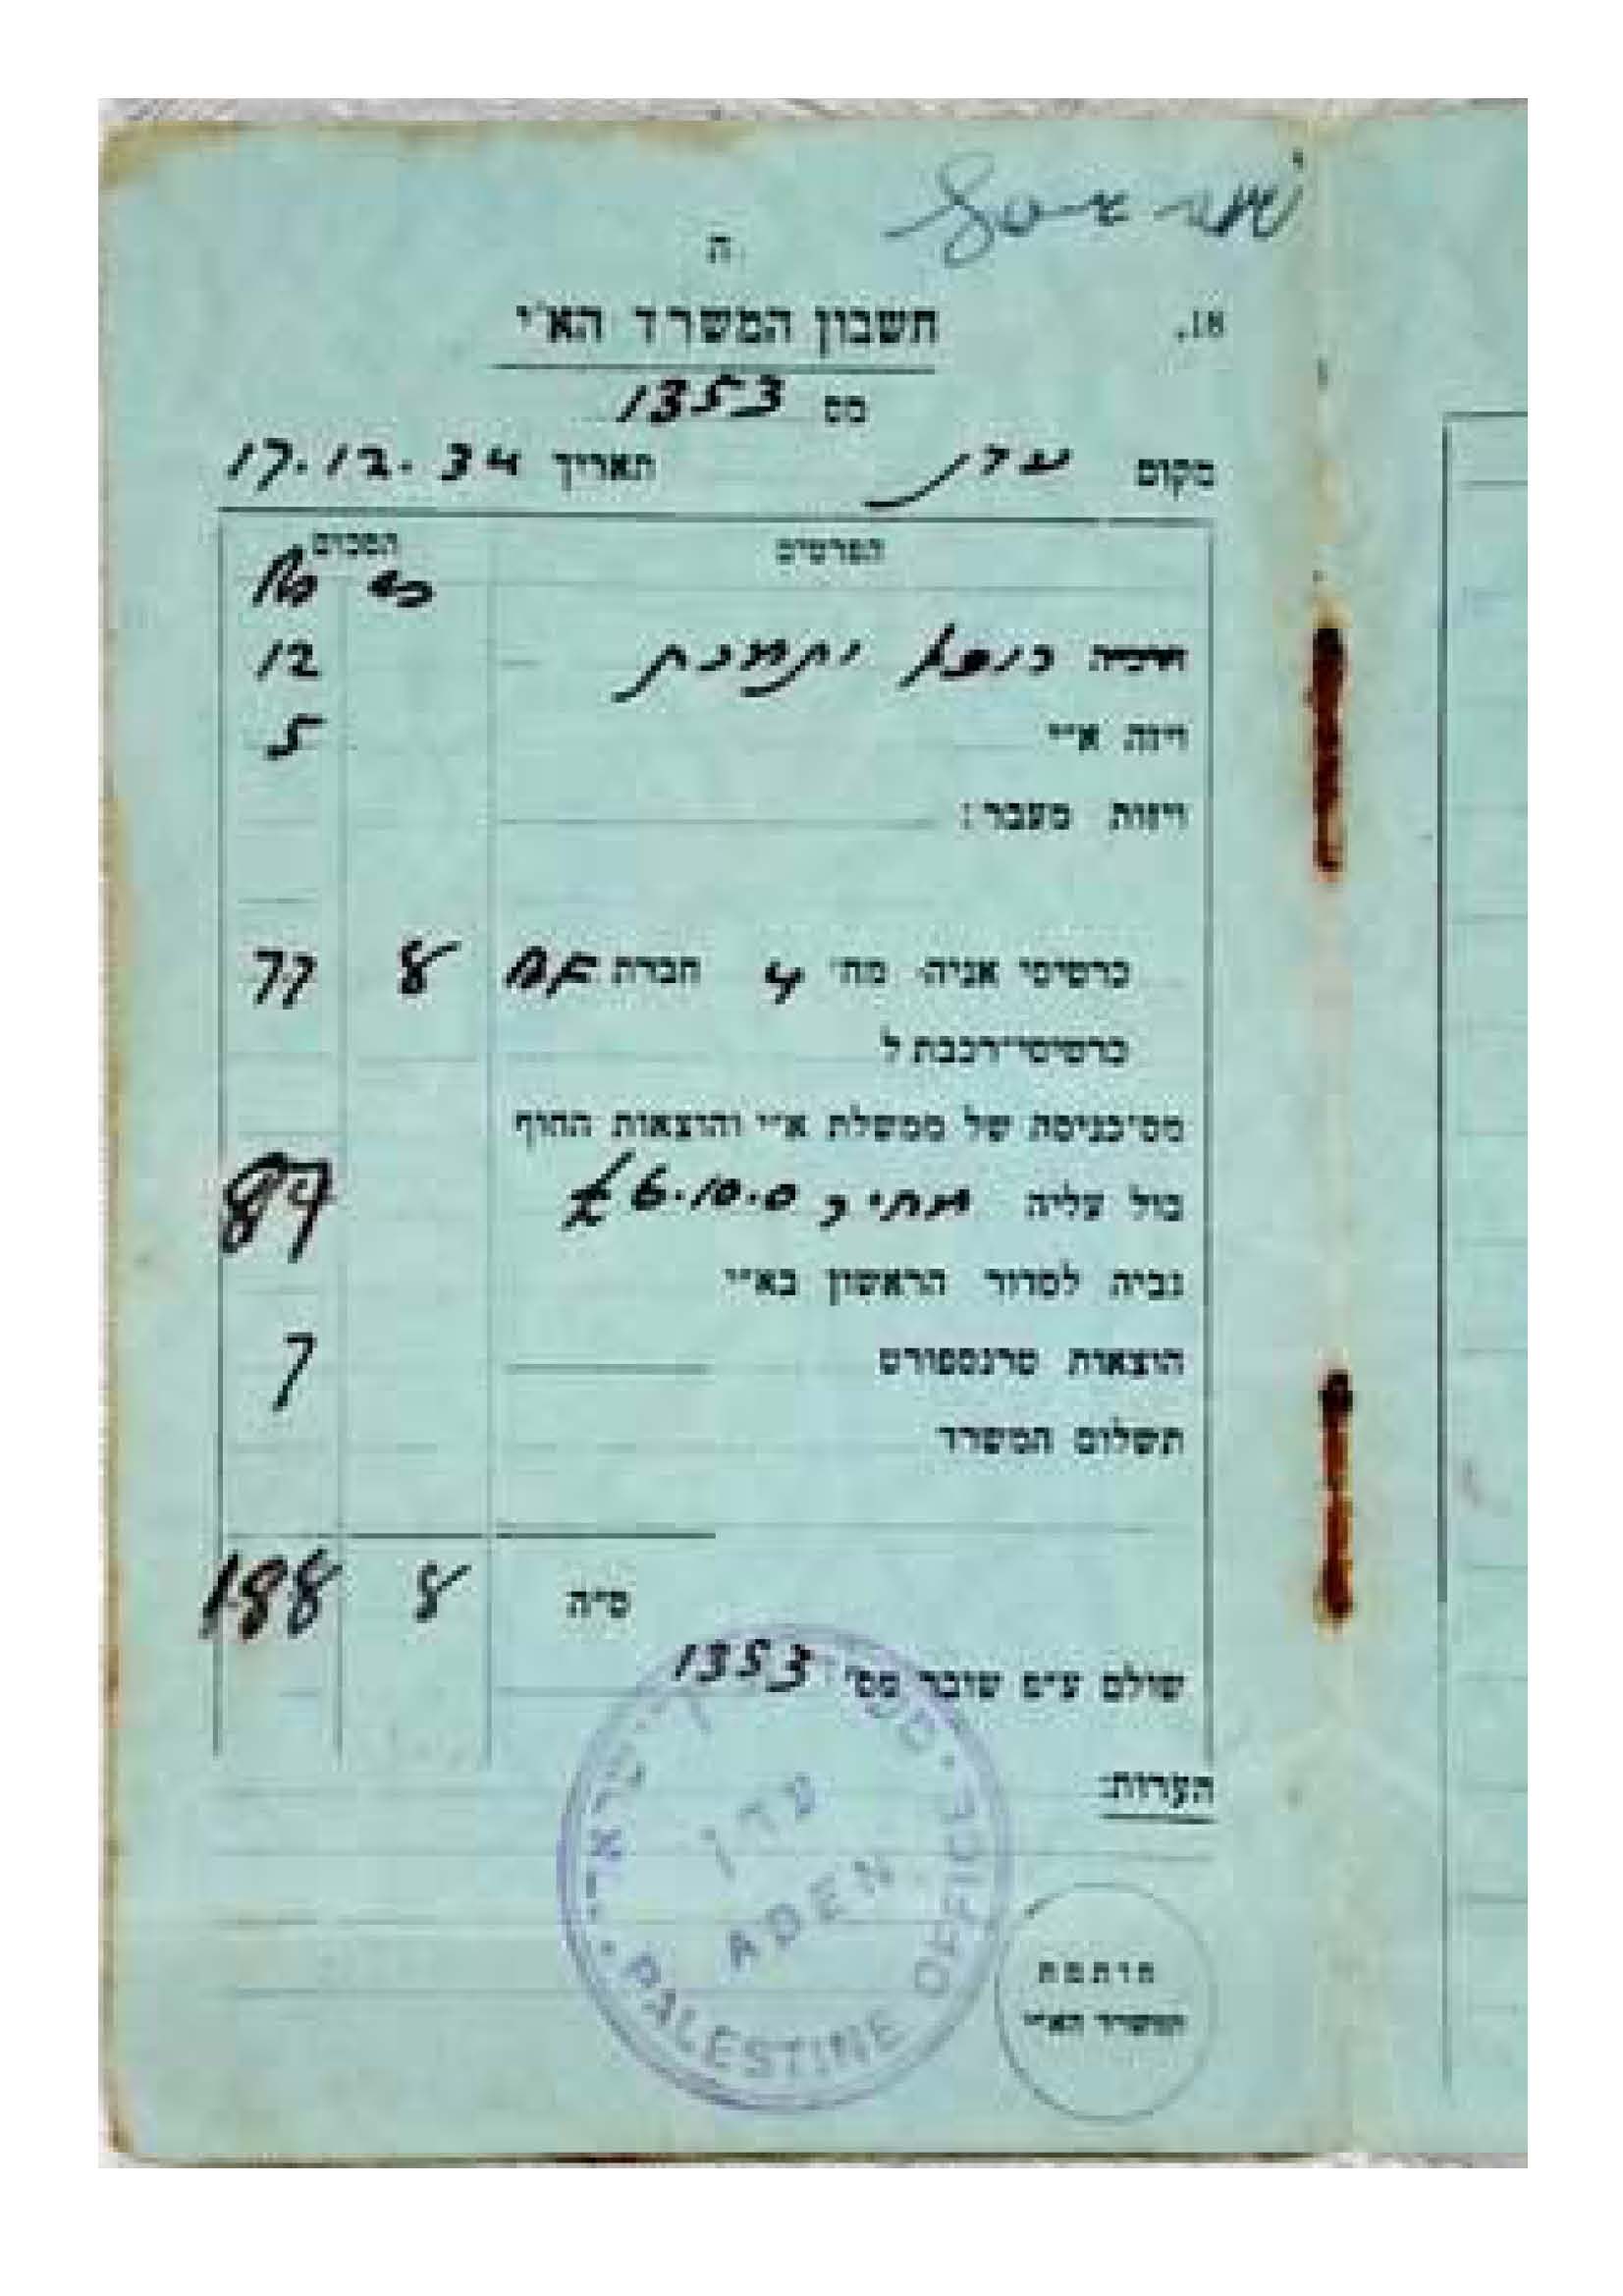 ה
18.
חשבון המשרד הא"י
מס 1353
מקום עדן תאריך 17.12.34
הפרטים הסכום
12
ויזה א"י 5
ויזות מעבר:
כרטיסי אניה מח' 4 חברת 8 77
כרטיסי־רכבת ל
מס־כניסה של ממשלת א"י והוצאות החוף
בול עליה £6.10.0 87
גביה לסדור הראשון בא"י
הוצאות טרנספורט 7
תשלום המשרד
ס"ה 8 188
שולם ע"פ שובר מס' 1353
הערות:
עדן
ADEN
PALESTINE OFFICE
חותמת
המשרד הא"י